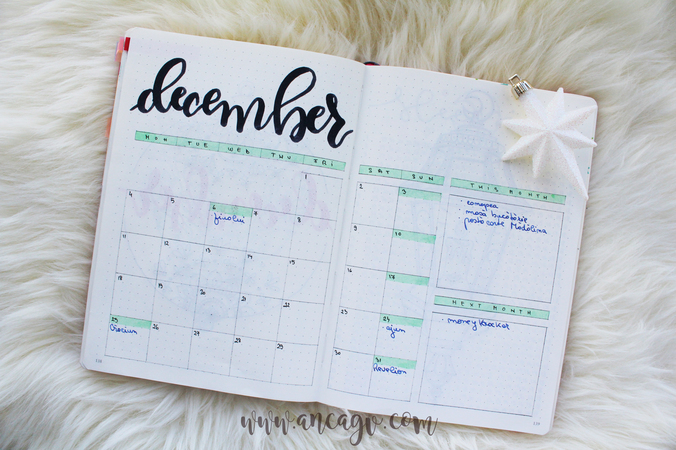 december
MON TUE WED THU FRI
SAT SUN
1
2 3
4 5 6 7 8
9 10
11 12 13 14 15
16 17
18 19 20 21 22
23 24
ajun
25 26 27 28 29
Crăciun
30 31
Revelion
THIS MONTH
· canapea
NEXT MONTH
· money tracker
www.ancagv.com